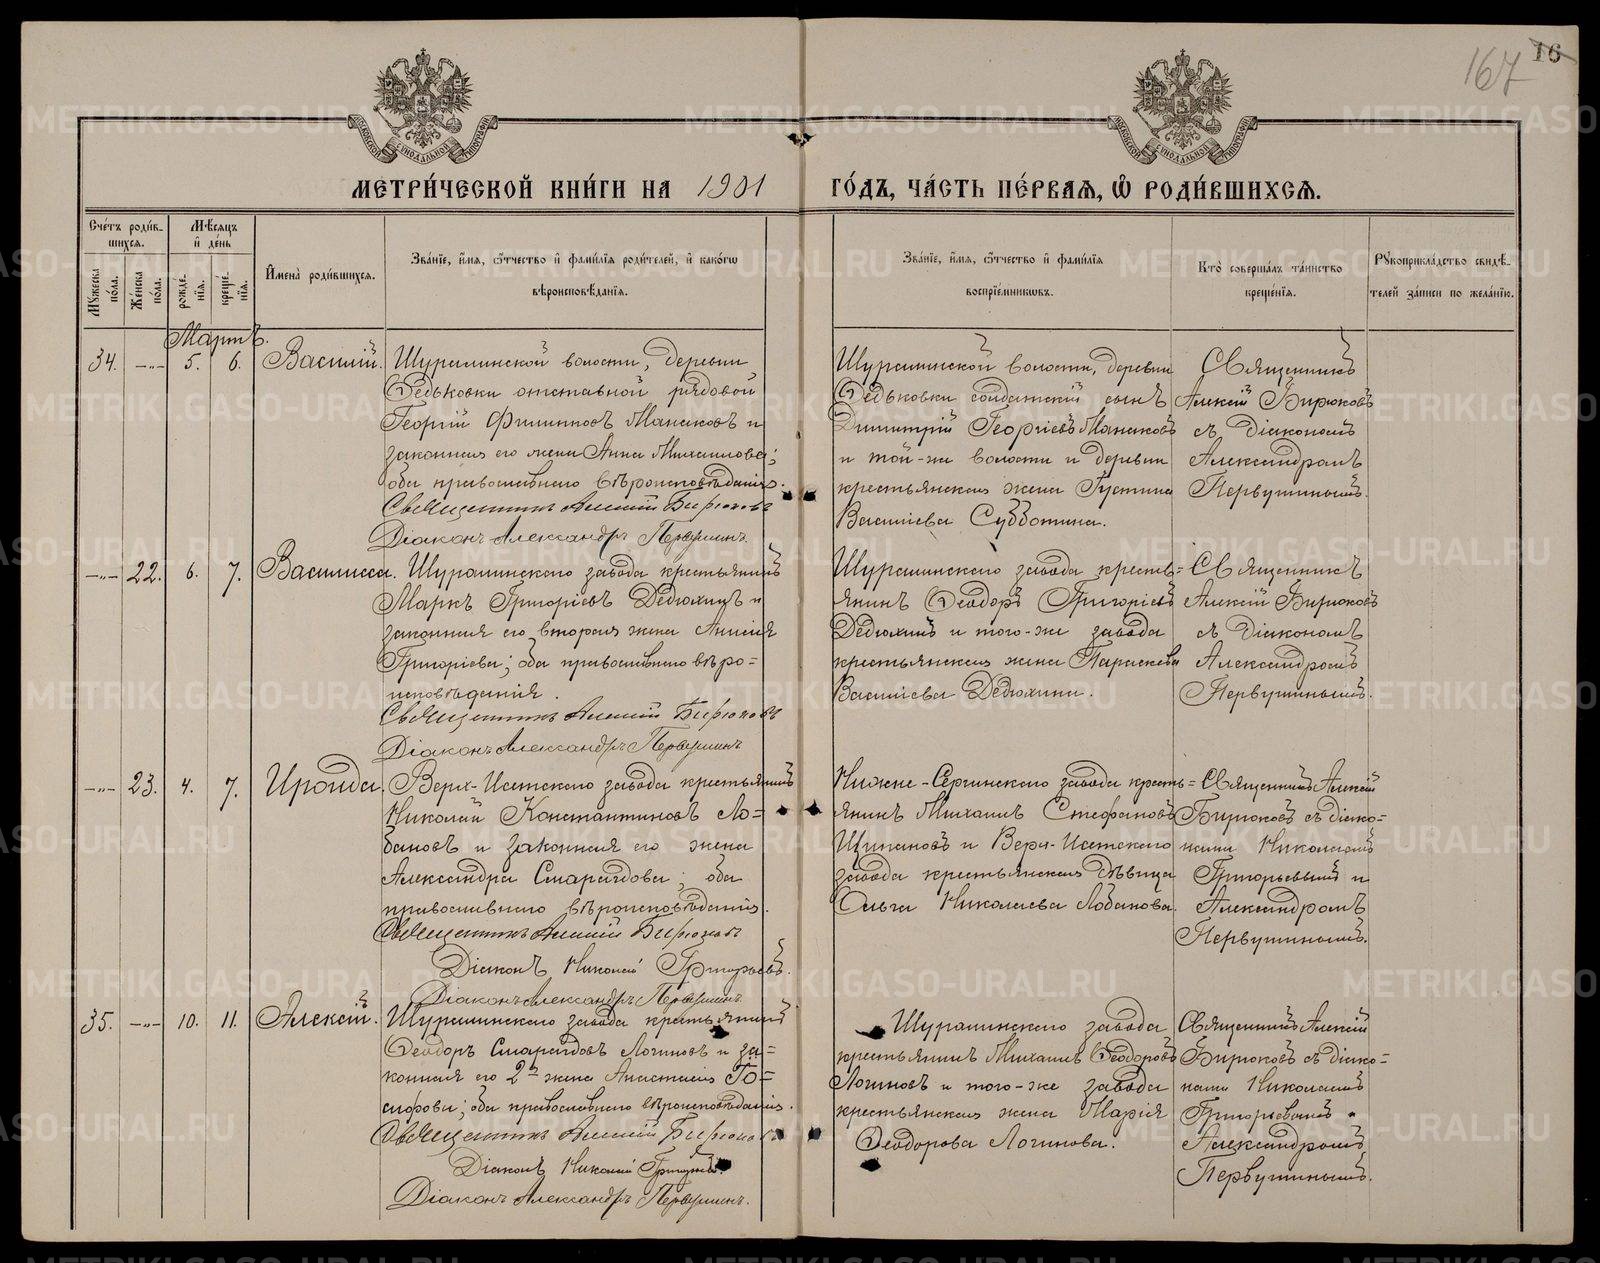 167 16
МЕТРИ́ЧЕСКОЙ КНИ́ГИ НА 1901 ГО́ДЪ, ЧА́СТЬ ПЕ́РВАЯ, Ѡ҆ РОДИ́ВШИХСЯ.
Счетъ роди́вшихся.
Мѣсяцъ и де́нь
Мужеска по́ла.
Же́нска по́ла.
рожде́нія.
креще́нія.
Имена̀ роди́вшихся.
Зва́ніе, и́мя, ѻ́тчество и фами́лія роди́телей, и како́гѡ
вѣроисповѣ́данія.
Зва́ніе, и́мя, ѻ́тчество и фами́лія
воспріе́мниковъ.
Кто̀ соверша́лъ та́инство
креще́нія.
Рукоприкла́дство свидѣ́-
телей за́писи по жела́нію.
Мартъ.
34. —„— 5. 6. Василій.
Шуралинской волости, деревни
Ѳедьковки отставной рядовой
Георгій Филипповъ Манаковъ и
законная его жена Анна Михаилова;
оба православнаго вѣроисповѣданія.
Священникъ Алексій Бирюковъ
Діаконъ Александръ Первушинъ.
Шуралинской волости, деревни
Ѳедьковки солдатскій сынъ
Димитрій Георгіевъ Манаковъ
и той-же волости и деревни
крестьянская жена Іустина
Василіева Субботина.
Священникъ
Алексій Бирюковъ
съ діакономъ
Александромъ
Первушинымъ.
—„— 22. 6. 7. Василисса.
Шуралинскаго завода крестьянинъ
Маркъ Григоріевъ Дедюхинъ и
законная его вторая жена Анисія
Григоріева; оба православнаго вѣро=
исповѣданія.
Священникъ Алексій Бирюковъ
Діаконъ Александръ Первушинъ
Шуралинскаго завода кресть=
янинъ Ѳеодоръ Григоріевъ
Дедюхинъ и того-же завода
крестьянская жена Параскева
Василіева Дедюхина.
Священникъ
Алексій Бирюковъ
съ діакономъ
Александромъ
Первушинымъ.
—„— 23. 4. 7. Ираида.
Верх-Исетскаго завода крестьянинъ
Николай Константиновъ Ло=
бановъ и законная его жена
Александра Смарагдова; оба
православнаго вѣроисповѣданія.
Священникъ Алексій Бирюковъ
Діаконъ Николай Григорьевъ.
Діаконъ Александръ Первушинъ.
Нижне-Сергинскаго завода кресть=
янинъ Михаилъ Стефановъ
Щипановъ и Верх-Исетскаго
завода крестьянская дѣвица
Ольга Николаева Лобанова.
Священникъ Алексій
Бирюковъ съ діако=
нами Николаемъ
Григорьевымъ и
Александромъ
Первушинымъ.
35. —„— 10. 11. Алексій.
Шуралинскаго завода крестьянинъ
Ѳеодоръ Смарагдовъ Логиновъ и за=
конная его 2я жена Анастасія
оба православнаго вѣроисповѣданія.
Священникъ Алексій Бирюковъ
Діаконъ Николай Григорьевъ.
Діаконъ Александръ Первушинъ.
Шуралинскаго завода
крестьянинъ Михаилъ Ѳеодоровъ
Логиновъ и того-же завода
крестьянская жена Марія
Ѳеодорова Логинова.
Священникъ Алексій
Бирюковъ съ діако=
нами Николаемъ
Григорьевымъ и
Александромъ
Первушинымъ.
METRIKI.GASO-URAL.RU